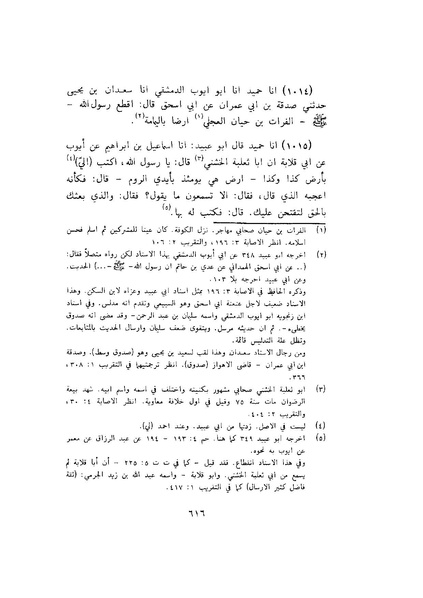 (١٠١٤) انا حميد انا ابو ايوب الدمشقي انا سعدان بن يحيى
حدثني صدقة بن ابي عمران عن ابي اسحق قال: اقطع رسول الله –
ﷺ – الفرات بن حيان العجلي(١) ارضا باليامة(٢).
(١٠١٥) انا حميد قال ابو عبيد: انا اسماعيل بن ابراهيم عن أيوب
عن ابي قلابة ان ابا ثعلبة الخشني(٣) قال: يا رسول الله، اكتب (اليّ)(٤)
بأرض كذا وكذا – ارض هي يومئذ بأيدي الروم – قال: فكأنه
اعجبه الذي قال، فقال: الا تسمعون ما يقول؟ فقال: والذي بعثك
بالحق لتفتحن عليك. قال: فكتب له بها.(٥)
(١) الفرات بن حيان صحابي مهاجر. نزل الكوفة. كان عينا للمشركين ثم اسلم فحسن
اسلامه. انظر الاصابة ٣: ١٩٦، والتقريب ٢: ١٠٦
(٢) اخرجه ابو عبيد ٣٤٨ عن ابي أيوب الدمشقي بهذا الاسناد لكن رواه متصلاً فقال:
(.. عن ابي اسحق الهمداني عن عدي بن حاتم ان رسول الله – ﷺ –...) الحديث.
وعن ابي عبيد اخرجه بلا ١٠٣.
وذكره الحافظ في الاصابة ٣: ١٩٦ بمثل اسناد ابي عبيد وعزاه لابن السكن. وهذا
الاسناد ضعيف لاجل عنعنة ابي اسحق وهو السبيعي وتقدم انه مدلس. وفي اسناد
ابن زنجويه ابو ايوب الدمشقي واسمه سليمان بن عبد الرحمن – وقد مضى انه صدوق
يخطىء –. ثم ان حديثه مرسل. ويتقوى ضعف سليمان وارسال الحديث بالمتابعات.
وتظل علة التدليس قائمة.
ومن رجال الاسناد سعدان وهذا لقب لسعيد بن يحيى وهو (صدوق وسط). وصدقة
ابن ابي عمران – قاضي الاهواز (صدوق). انظر ترجمتيهما في التقريب ١: ٣٠٨،
٣٦٦.
(٣) ابو ثعلبة الخشني صحابي مشهور بكنيته واختلف في اسمه واسم ابيه. شهد بيعة
الرضوان مات سنة ٧٥ وقيل في اول خلافة معاوية. انظر الاصابة ٤: ٣٠،
والتقريب ٢: ٤٠٤.
(٤) ليست في الاصل. زدتها من ابي عبيد. وعند احمد (لي).
(٥) اخرجه ابو عبيد ٣٤٩ كما هنا. حم ٤: ١٩٣ – ١٩٤ عن عبد الرزاق عن معمر
عن ايوب به نحوه.
وفي هذا الاسناد انقطاع. فقد قيل – كما في ت ت ٥: ٢٢٥ – أن أبا قلابة لم
يسمع من ابي ثعلبة الخشني. وابو قلابة – واسمه عبد الله بن زيد الجرمي: (ثقة
فاضل كثير الارسال) كما في التقريب ١: ٤١٧.
٦١٦